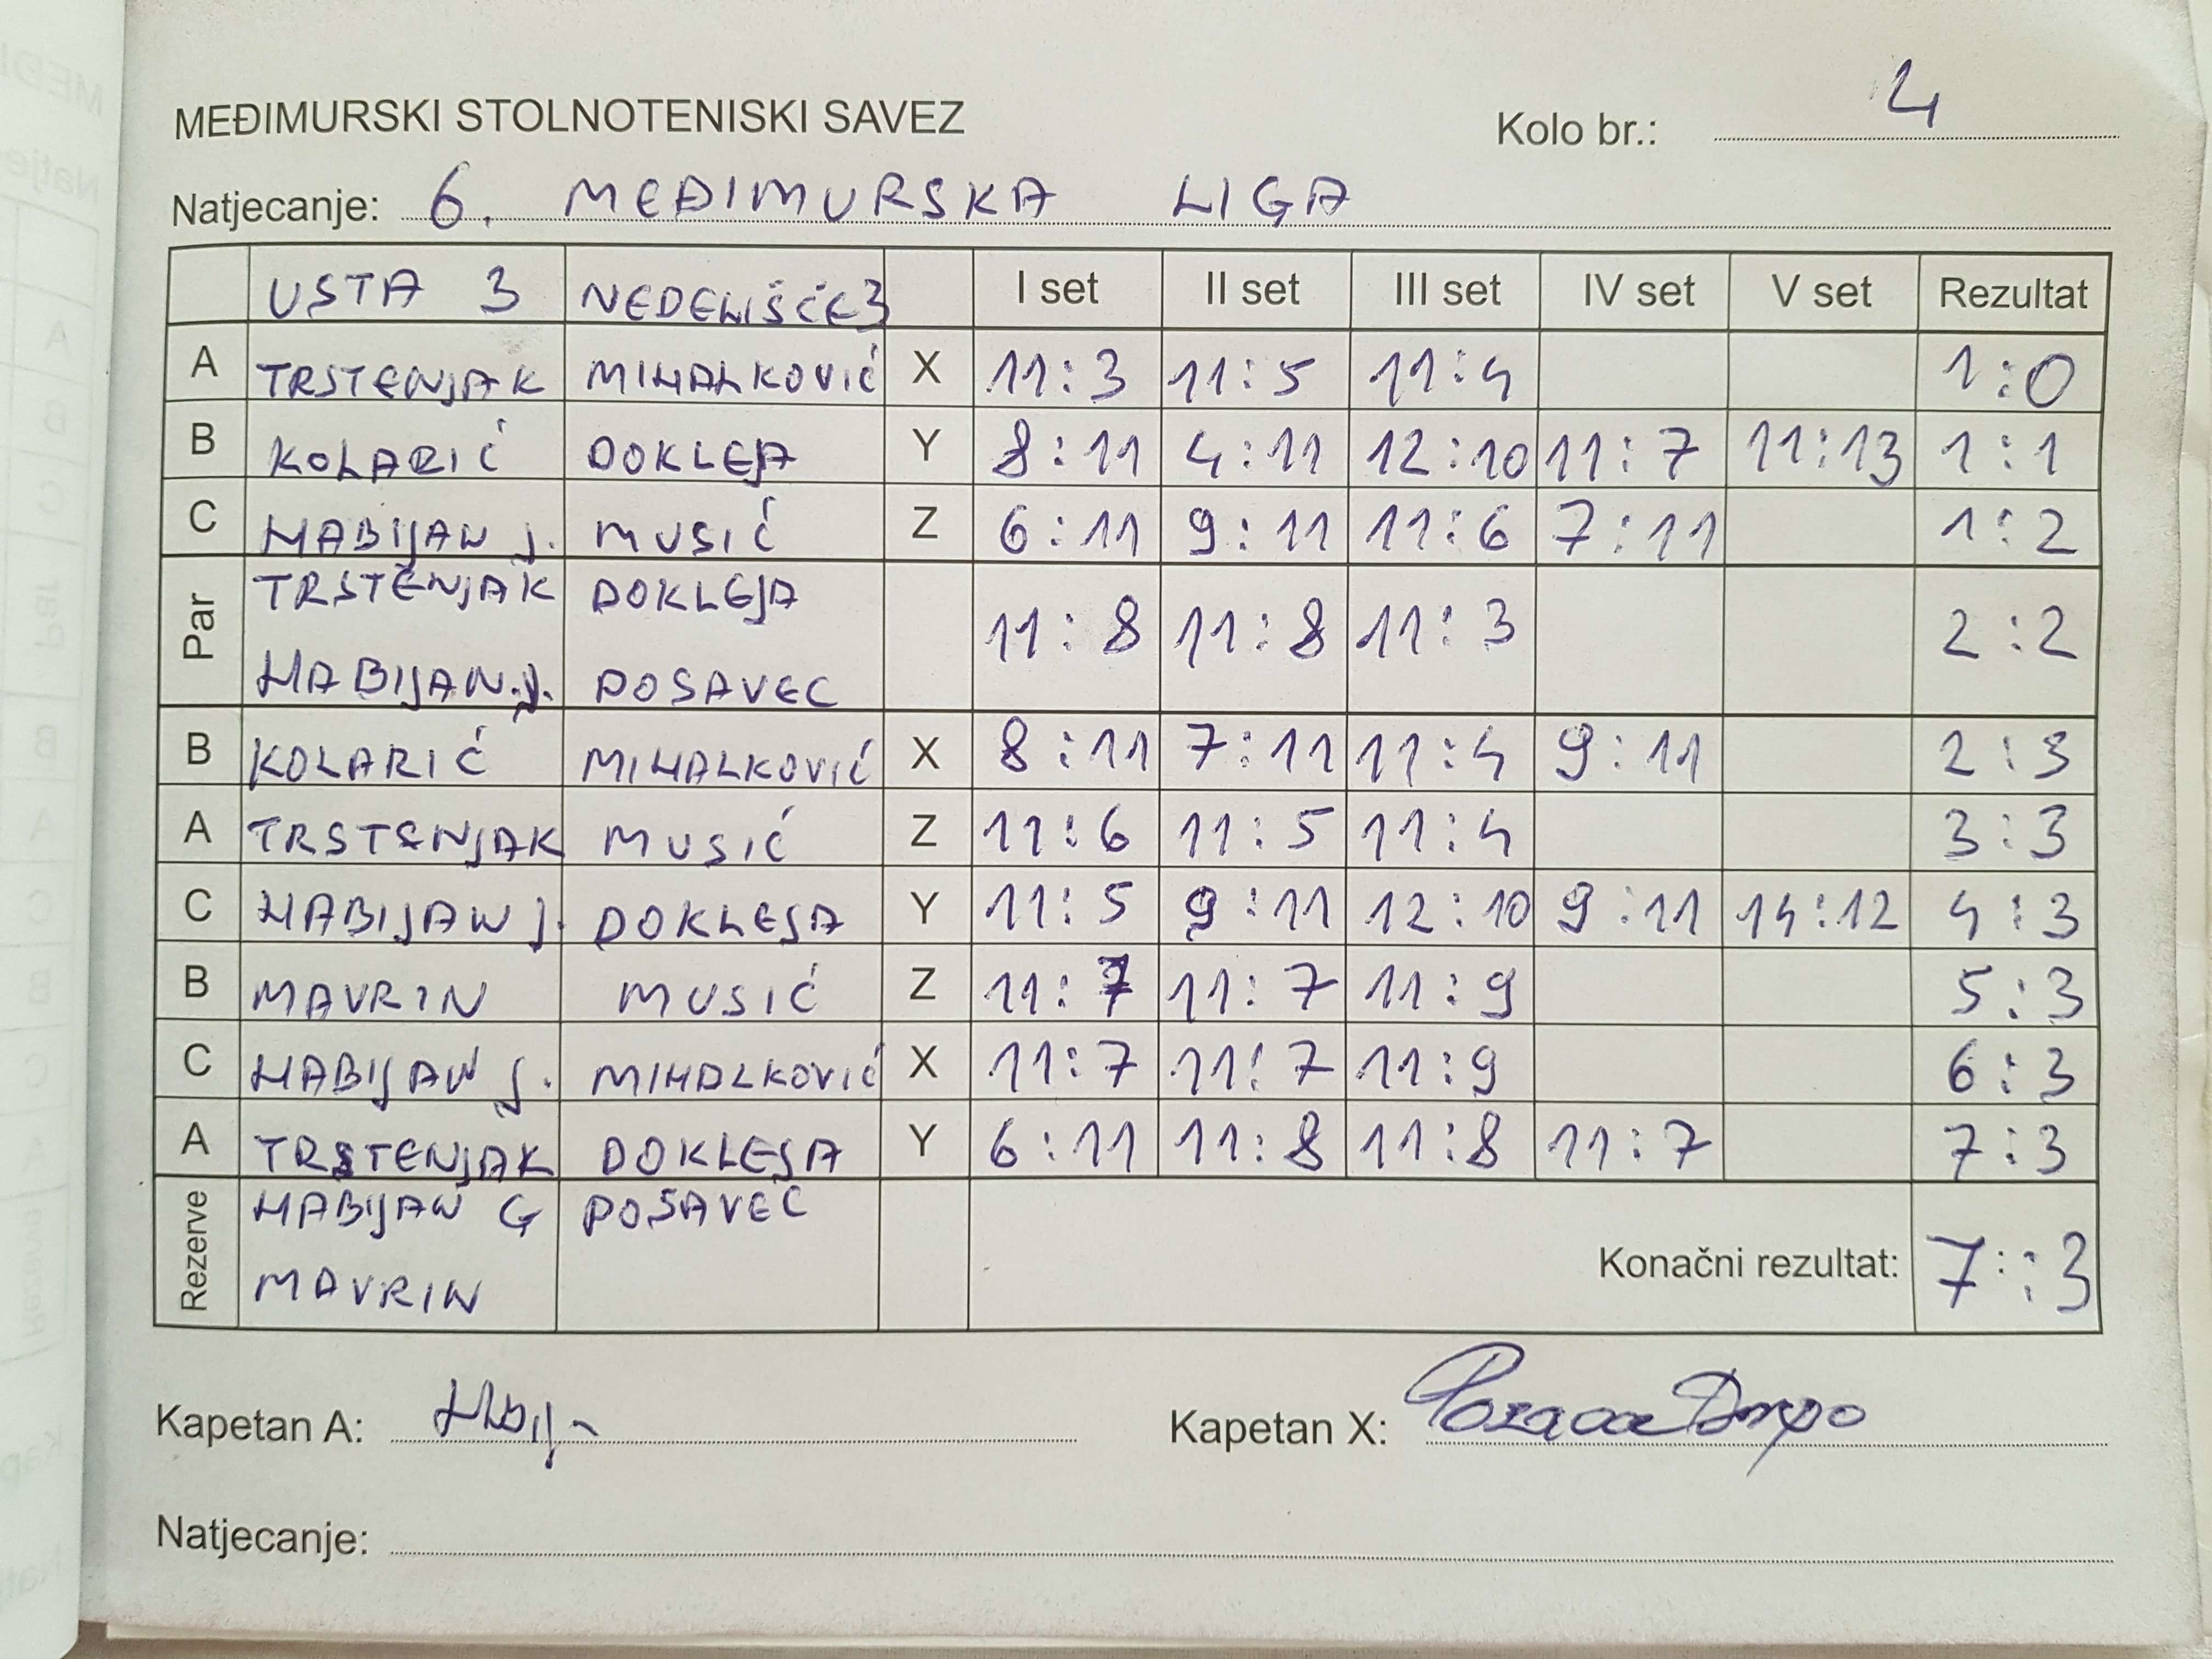 MEĐIMURSKI STOLNOTENISKI SAVEZ Kolo br.: 4
Natjecanje: 6. MEĐIMURSKA LIGA
USTA 3 NEDELIŠĆE 3 I set II set III set IV set V set Rezultat
A TRSTENJAK MIHALKOVIĆ X 11:3 11:5 11:4 1:0
B KOLARIĆ DOKLEJA Y 8:11 4:11 12:10 11:7 11:13 1:1
C HABIJAN J. MUSIĆ Z 6:11 9:11 11:6 7:11 1:2
Par TRSTENJAK DOKLEJA 11:8 11:8 11:3 2:2
HABIJAN J. POSAVEC
B KOLARIĆ MIHALKOVIĆ X 8:11 7:11 11:4 9:11 2:3
A TRSTENJAK MUSIĆ Z 11:6 11:5 11:4 3:3
C HABIJAN J. DOKLEJA Y 11:5 9:11 12:10 9:11 14:12 4:3
B MAVRIN MUSIĆ Z 11:7 11:7 11:9 5:3
C HABIJAN J. MIHALKOVIĆ X 11:7 11:7 11:9 6:3
A TRSTENJAK DOKLEJA Y 6:11 11:8 11:8 11:7 7:3
Rezerve HABIJAN G POSAVEC
MAVRIN
Konačni rezultat: 7:3
Kapetan A: Kapetan X:
Natjecanje: